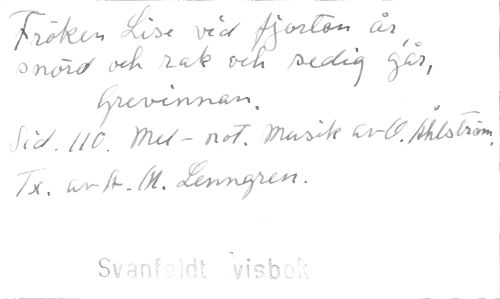 Fröken Lise vid fjorton år,
snörd och rak och sedig går,
Grevinnan.
Sid. 110. Mel-not. Musik av O. Åhlström.
Tx. av A. M. Lenngren.
Svanfeldt visbok